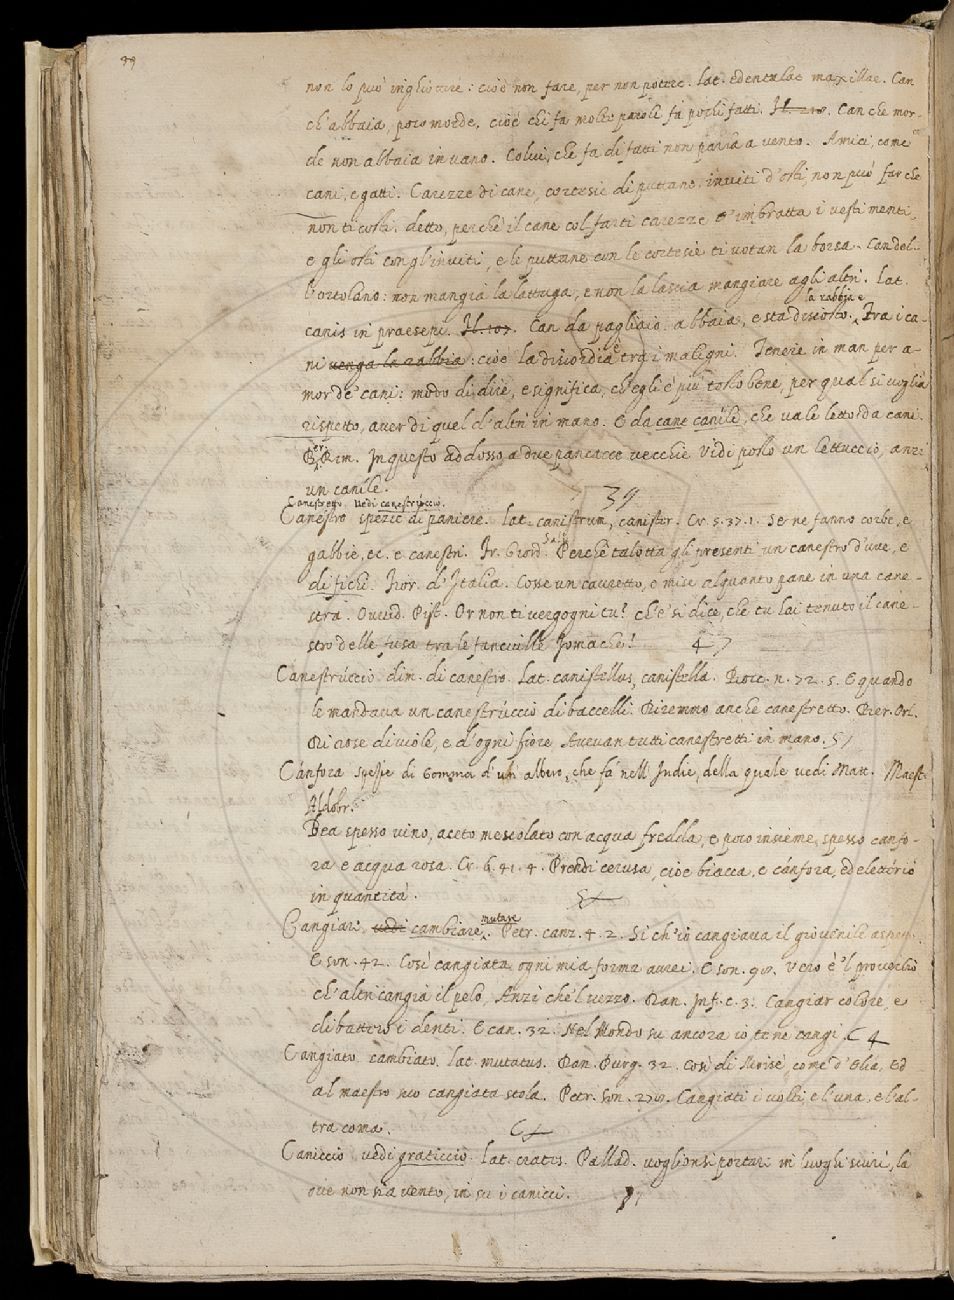 non lo può inghiottire: cioè non fare, per non potere. lat. edentulae maxillae. Can
ch'abbaia, poco morde, cioè chi fa molte parole fa pochi fatti. Can che mor-
de non abbaia in vano. Colui, che fa di fatti non parla a vento. Amici, come
cani, e gatti. Carezze di cane, cortesie di puttane, inviti d'osti, non può far che
non ti costi. detto, perchè il cane col farti carezze t'imbratta i vestimenti,
e gli osti con gl'inviti, e le puttane con le cortesie ti votan la borsa. Can del-
l'ortolano: non mangia la lattuga, e non la lascia mangiare agli altri. Lat.
la rabbia e
canis in praesepi. Can da pagliaio. abbaia, e sta discosto. Tra i ca-
ni venga la rabbia: cioè la discordia è tra i maligni. Tenere in man per a-
mor de' cani: modo di dire, e significa, ch'egli è più tosto bene, per qual si voglia
rispetto, aver di quel d'altri in mano. E da cane canile, che vale letto da cani.
Ber. Rim. In questo addosso a due pancacce vecchie Vidi posto un lettuccio, anzi
un canile. 39
Canestretto. vedi canestruccio.
Canestro spezie di paniere. lat. canistrum, canister. Cr. 5. 37. 1. Se ne fanno corbe, e
gabbie, ec. e canestri. Fr. Giord. Perchè talotta gli presenti un canestro d'uve, e
di fichi. Fior. d'Italia. Cosse un cavretto, e mise alquanto pane in una cane-
stra. Ovvid. Pist. Or non ti vergogni tu? ch'e' si dice, che tu hai tenuto il cane-
stro delle fusa tra le fanciulle Jomache! 47
Canestrúccio. dim. di canestro. Lat. canistellus, canistella. Bocc. n. 72. 5. E quando
le mandava un canestrúccio di baccelli. Diremmo anche canestretto. Ber. Orl.
Di rose di viole, e d'ogni fiore Avevan tutti canestretti in mano. 57
Cánfora spezie di Gomma d'un albero, che fa nell'Indie, della quale vedi Matt. Maest.
Aldobr.
Bea spesso vino, aceto mescolato con acqua fredda, e poco insieme, spesso canfo-
ra e acqua rosa. Cr. 6. 41. 4. Prendi cerusa, cioè biacca, e cánfora, ed elettrio
in quantità.
Cangiare, vedi cambiare, mutare. Petr. canz. 4. 2. Si ch'io cangiava il giovenile aspetto.
E son. 42. Così cangiata ogni mia forma avrei. E son. 98. Vero è 'l proverbio
ch'altri cangia il pelo, Anzi che 'l vezzo. Dan. Inf. c. 3. Cangiar colore e
dibattero i denti. E can. 32. Nel Mondo su ancora io te ne cangi.
Cangiato. cambiato. lat. mutatus. Dan. Purg. 32. Così di Moisè, come d'Elia, Ed
al maestro suo cangiata stola. Petr. Son. Cangiati i volti, e l'una, e l'al-
tra coma.
Caniccio. vedi graticcio. lat. cratis. Pallad. voglionsi portare in luoghi scuri, là
ove non sia vento, in su i canicci.